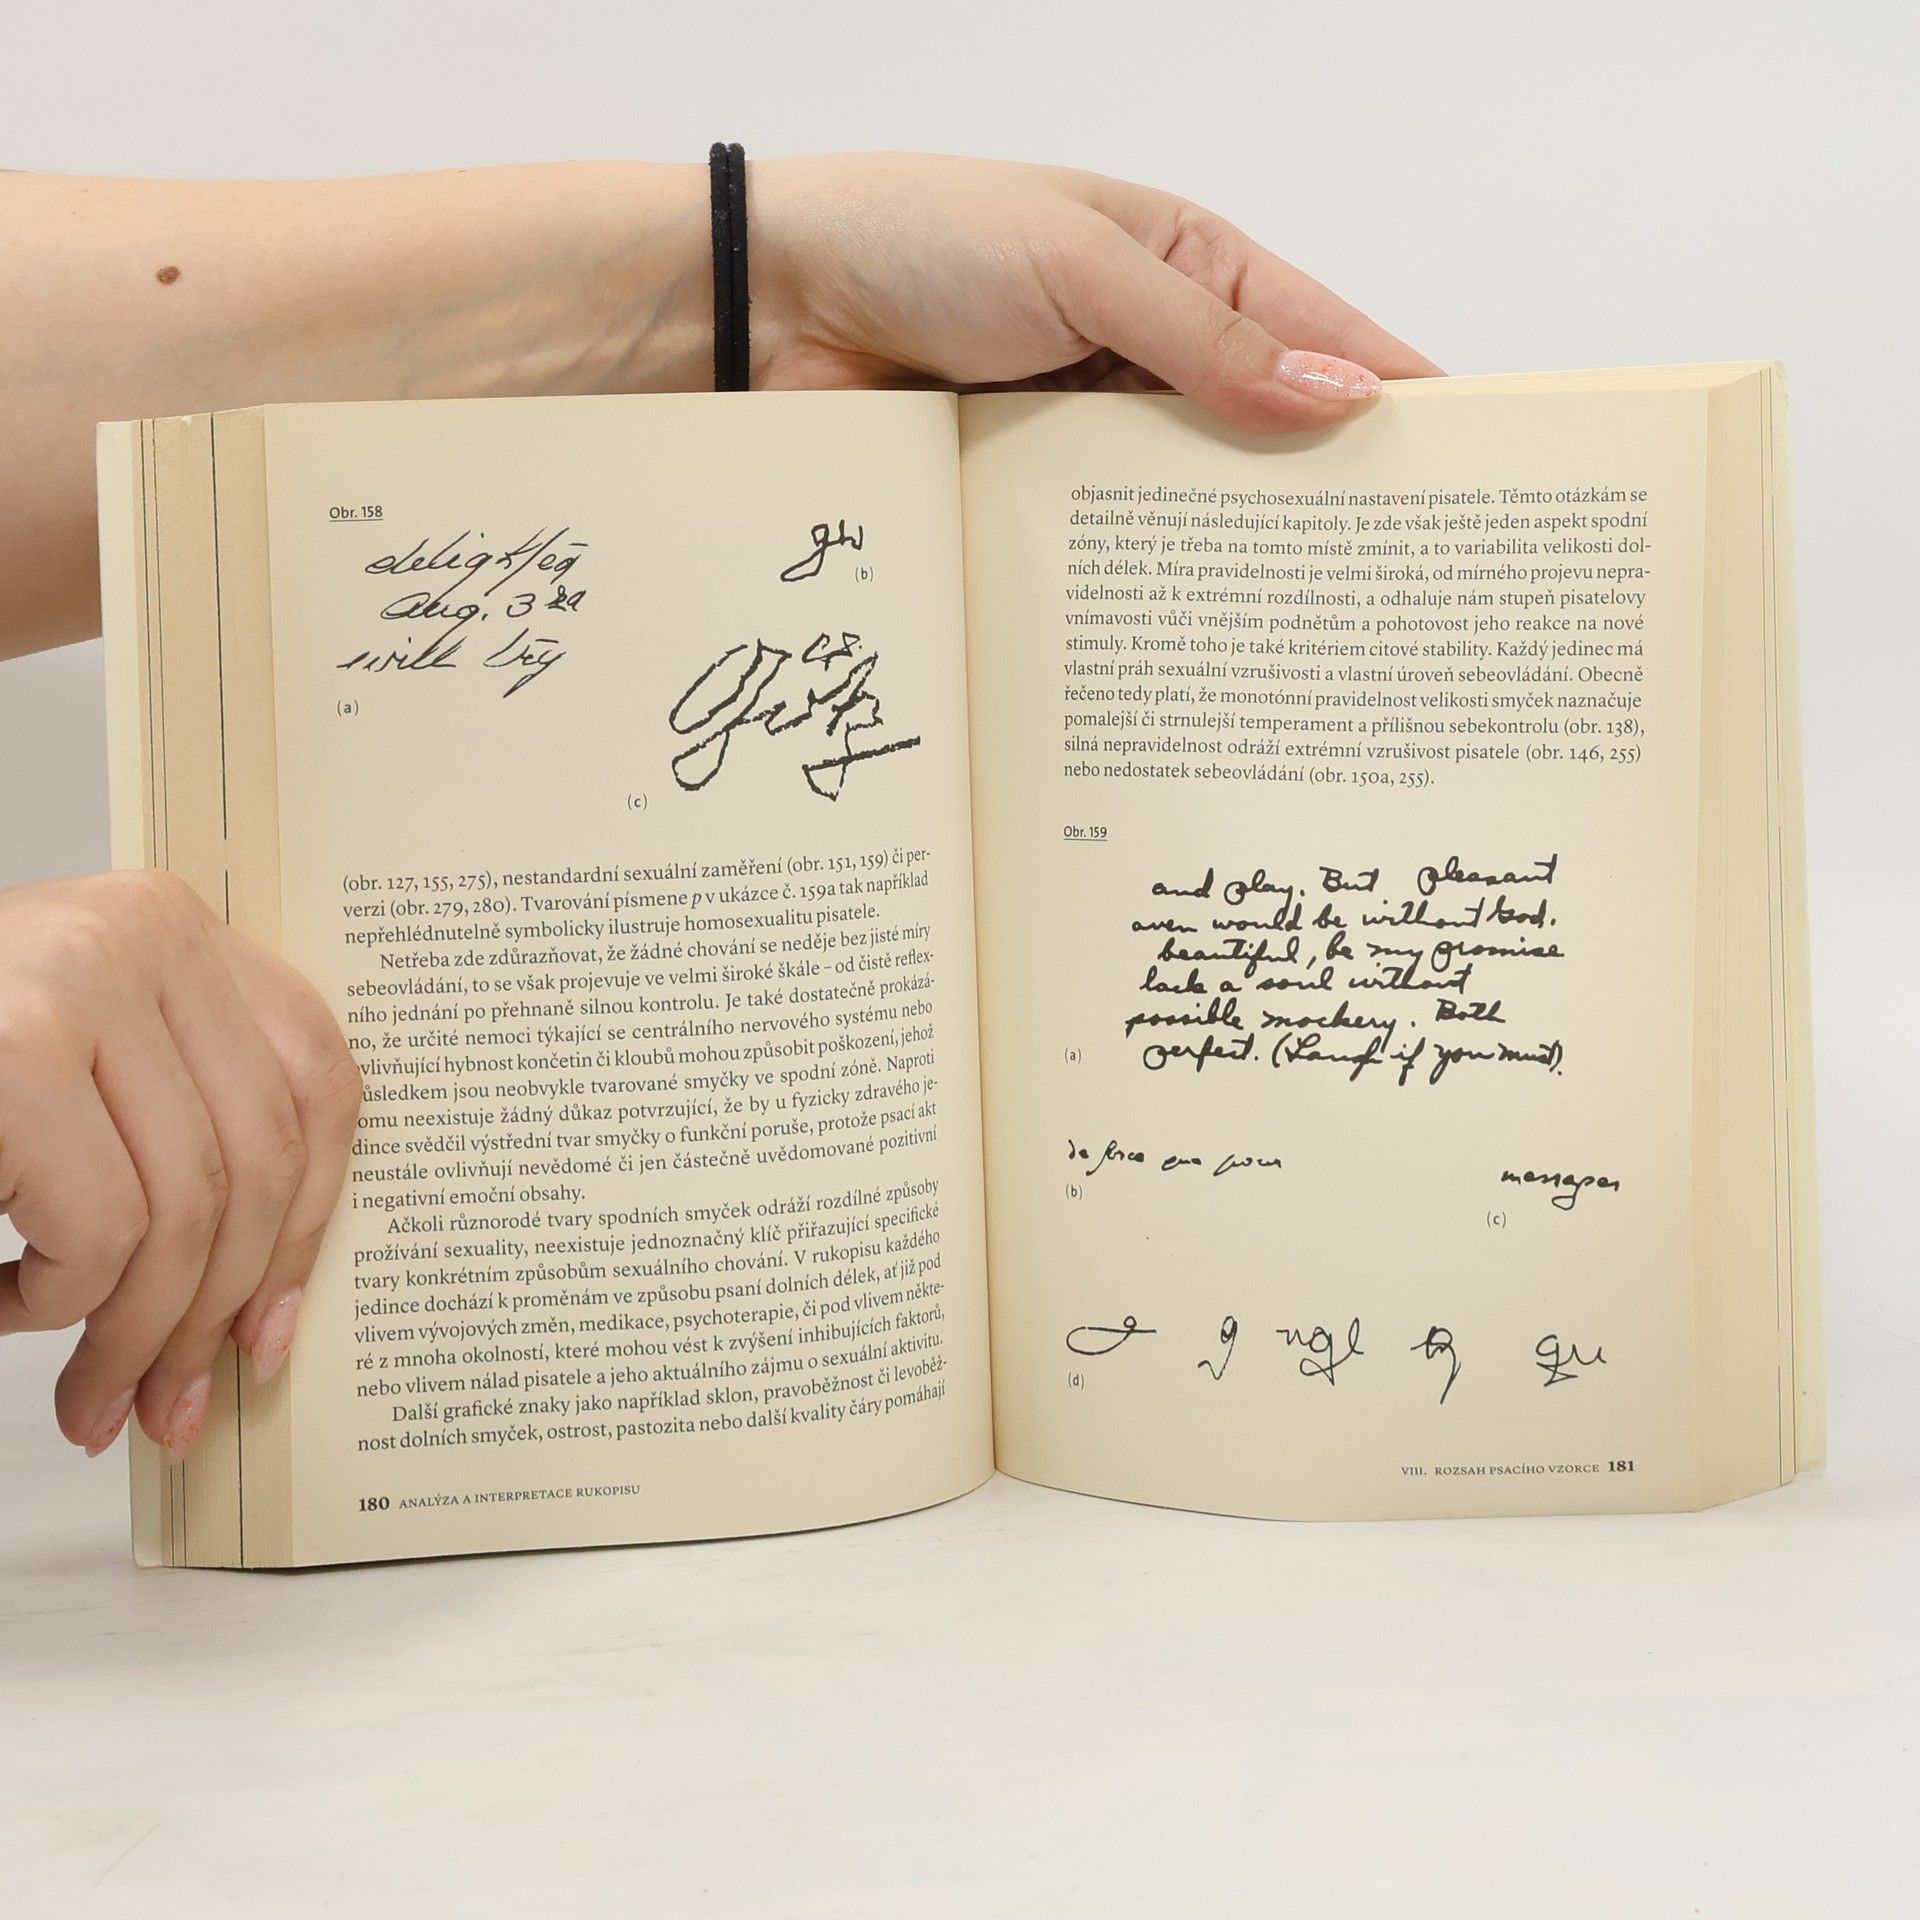 Obr. 158
delighted
Aug. 3
will try
(a)
(b)
(c)
(obr. 127, 155, 275), nestandardní sexuální zaměření (obr. 151, 159) či per-
verzi (obr. 279, 280). Tvarování písmene p v ukázce č. 159a tak například
nepřehlédnutelně symbolicky ilustruje homosexualitu pisatele.
Netřeba zde zdůrazňovat, že žádné chování se neděje bez jisté míry
sebeovládání, to se však projevuje ve velmi široké škále – od čistě reflex-
ního jednání po přehnaně silnou kontrolu. Je také dostatečně prokázá-
no, že určité nemoci týkající se centrálního nervového systému nebo
ovlivňující hybnost končetin či kloubů mohou způsobit poškození, jehož
ůsledkem jsou neobvykle tvarované smyčky ve spodní zóně. Naproti
tomu neexistuje žádný důkaz potvrzující, že by u fyzicky zdravého je-
dince svědčil výstřední tvar smyčky o funkční poruše, protože psací akt
neustále ovlivňují nevědomé či jen částečně uvědomované pozitivní
i negativní emoční obsahy.
Ačkoli různorodé tvary spodních smyček odráží rozdílné způsoby
prožívání sexuality, neexistuje jednoznačný klíč přiřazující specifické
tvary konkrétním způsobům sexuálního chování. V rukopisu každého
jedince dochází k proměnám ve způsobu psaní dolních délek, ať již pod
vlivem vývojových změn, medikace, psychoterapie, či pod vlivem někte-
ré z mnoha okolností, které mohou vést k zvýšení inhibujících faktorů,
nebo vlivem nálad pisatele a jeho aktuálního zájmu o sexuální aktivitu.
Další grafické znaky jako například sklon, pravoběžnost či levoběž-
nost dolních smyček, ostrost, pastozita nebo další kvality čáry pomáhají
180 ANALÝZA A INTERPRETACE RUKOPISU
objasnit jedinečné psychosexuální nastavení pisatele. Těmto otázkám se
detailně věnují následující kapitoly. Je zde však ještě jeden aspekt spodní
zóny, který je třeba na tomto místě zmínit, a to variabilita velikosti dol-
ních délek. Míra pravidelnosti je velmi široká, od mírného projevu nepra-
videlnosti až k extrémní rozdílnosti, a odhaluje nám stupeň pisatelovy
vnímavosti vůči vnějším podnětům a pohotovost jeho reakce na nové
stimuly. Kromě toho je také kritériem citové stability. Každý jedinec má
vlastní práh sexuální vzrušivosti a vlastní úroveň sebeovládání. Obecně
řečeno tedy platí, že monotónní pravidelnost velikosti smyček naznačuje
pomalejší či strnulejší temperament a přílišnou sebekontrolu (obr. 138),
silná nepravidelnost odráží extrémní vzrušivost pisatele (obr. 146, 255)
nebo nedostatek sebeovládání (obr. 150a, 255).
Obr. 159
and play. But pleasant
aven would be without God.
beautiful, be my promise
lack a soul without
possible mockery. Both
(a) perfect. (Laugh if you must).
(b)
messages
(c)
(d)
VIII. ROZSAH PSACÍHO VZORCE 181